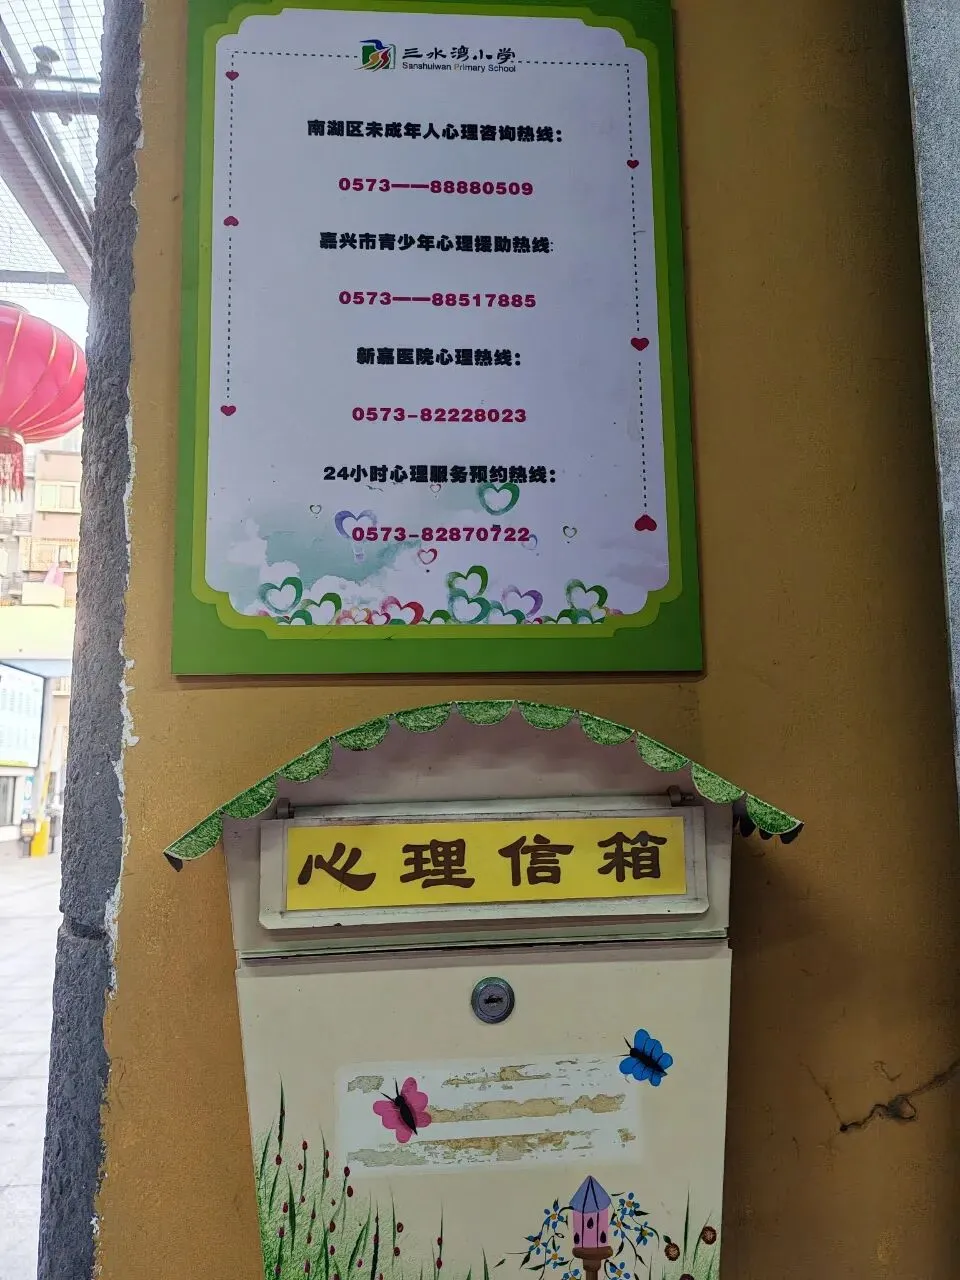 三水湾小学
Sanshuiwan Primary School
南湖区未成年人心理咨询热线：
0573——88880509
嘉兴市青少年心理援助热线：
0573——88517885
新嘉医院心理热线：
0573-82228023
24小时心理服务预约热线：
0573-82870722
心理信箱